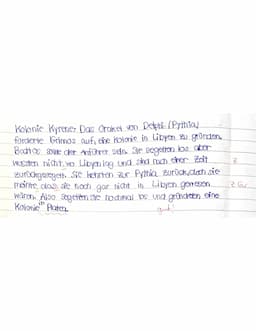 Kolonie Kyrene: Das Orakel von Delphi (Pythia)
forderte Grinnos auf, eine Kolonie in Libyen zu gründen.
Battos sollte der Anführer sein. Sie segelten los aber
wussten nicht, wo Libyen lag und sind nach einer Zeit
zurückgesegelt. Sie kehrten zur Pythia zurück, doch sie
meinte, dass sie noch gar nicht in Libyen gewesen
wären. Also segelten sie nochmal los und gründeten eine
Kolonie in Platea.
gut!